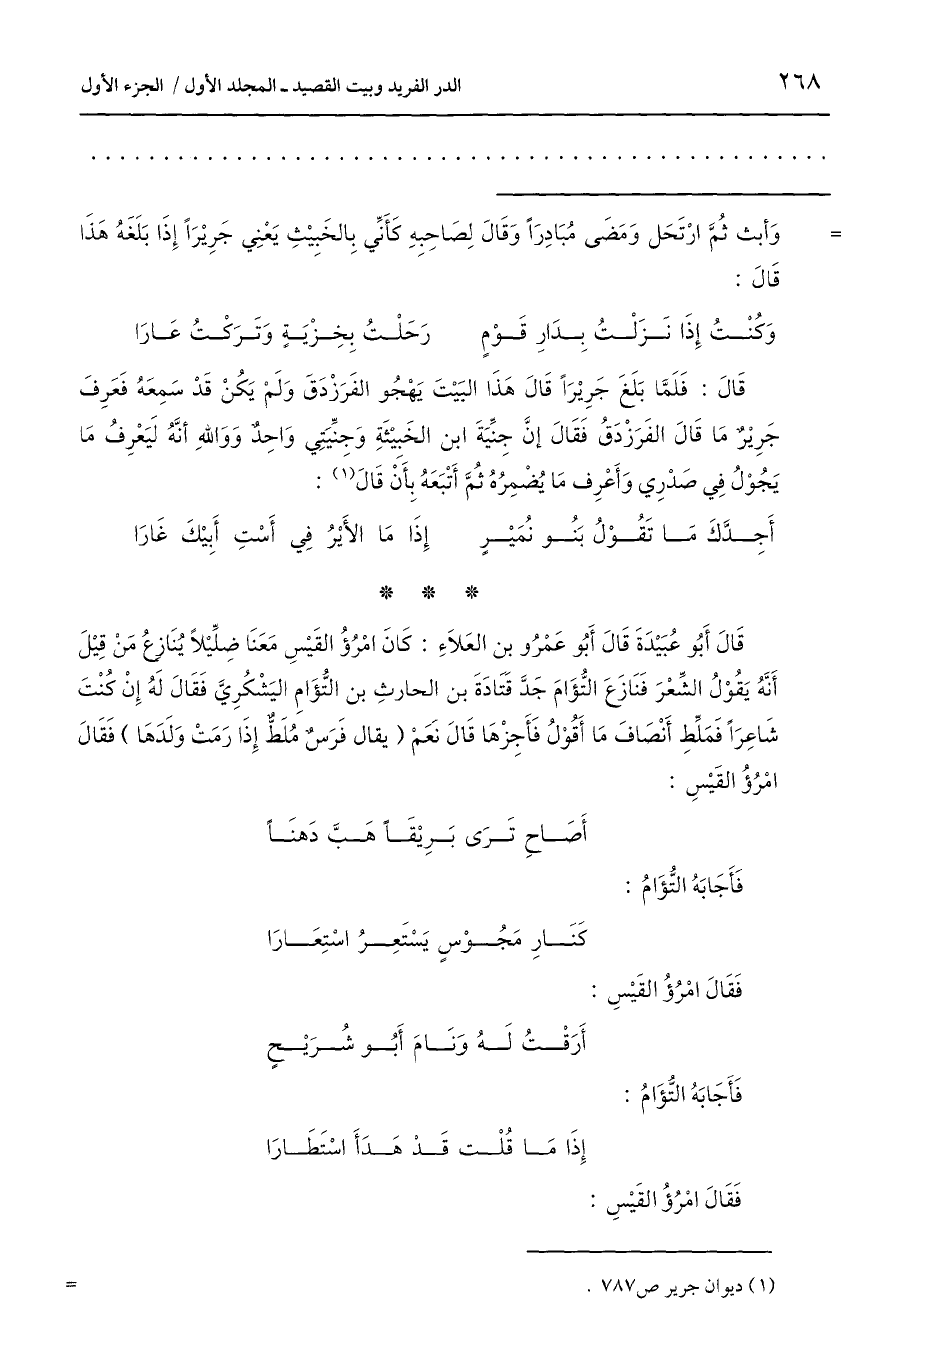 ٢٦٨ الدر الفريد وبيت القصيد ـ المجلد الأول / الجزء الأول
. . . . . . . . . . . . . . . . . . . . . . . . . . . . . . . . . . . . . . . . . . . . . . . . . .
= وَأبث ثُمَّ ارْتَحَل وَمَضَى مُبَادِرَاً وَقَالَ لِصَاحِبِهِ كَأَنِّي بِالخَبِيْثِ يَعْنِي جَرِيْرَاً إِذَا بَلَغَهُ هَذَا
قَالَ :
وَكُنْتُ إِذَا نَزَلْتُ بِدَارِ قَوْمٍ رَحَلْتُ بِخِزْيَةٍ وَتَرَكْتُ عَارَا
قَالَ : فَلَمَّا بَلَغَ جَرِيْرَاً قَالَ هَذَا البَيْتَ يَهْجُو الفَرَزْدَقَ وَلَمْ يَكُنْ قَدْ سَمِعَهُ فَعَرِفَ
جَرِيْرٌ مَا قَالَ الفَرَزْدَقُ فَقَالَ إِنَّ جِنِّيَةَ ابن الخَبِيْثَةِ وَجِنِّيَتِي وَاحِدٌ وَوَاللهِ أنَّهُ لَيَعْرِفُ مَا
يَجُوْلُ فِي صَدْرِي وَأَعْرِف مَا يُضْمِرُهُ ثُمَّ أَتْبَعَهُ بِأَنْ قَالَ(١) :
أَجِدَّكَ مَا تَقُوْلُ بَنُو نُمَيْرٍ إِذَا مَا الأَيْرُ فِي أَسْتِ أَبِيْكَ غَارَا
* * *
قَالَ أَبُو عُبَيْدَةَ قَالَ أَبُو عَمْرُو بن العَلَاءِ : كَانَ امْرُؤُ القَيْسِ مَعَنَا ضِلِّيْلاً يُنَازِعُ مَنْ قِيْلَ
أَنَّهُ يَقُوْلُ الشِّعْرَ فَنَازَعَ التُّؤَامَ جَدَّ قَتَادَةَ بن الحارثِ بن التُّؤَامِ اليَشْكُرِيَّ فَقَالَ لَهُ إِنْ كُنْتَ
شَاعِرَاً فَمَلِّطِ أَنْصَافَ مَا أَقُوْلُ فَأَجِزْهَا قَالَ نَعَمْ ( يقال فَرَسٌ مُلَطٌّ إِذَا رَمَتْ وَلَدَهَا ) فَقَالَ
امْرُؤُ القَيْسِ :
أَصَاحِ تَرَى بَرِيْقَاً هَبَّ دَهنَاً
فَأَجَابَهُ التُّؤَامُ :
كَنَارِ مَجُوْسٍ يَسْتَعِرُ اسْتِعَارَا
فَقَالَ امْرُؤُ القَيْسِ :
أَرَقْتُ لَهُ وَنَامَ أَبُو شُرَيْحٍ
فَأَجَابَهُ التُّؤَامُ :
إِذَا مَا قُلْت قَدْ هَدَأَ اسْتَطَارَا
فَقَالَ امْرُؤُ القَيْسِ :
(١) ديوان جرير ص٧٨٧ .
=